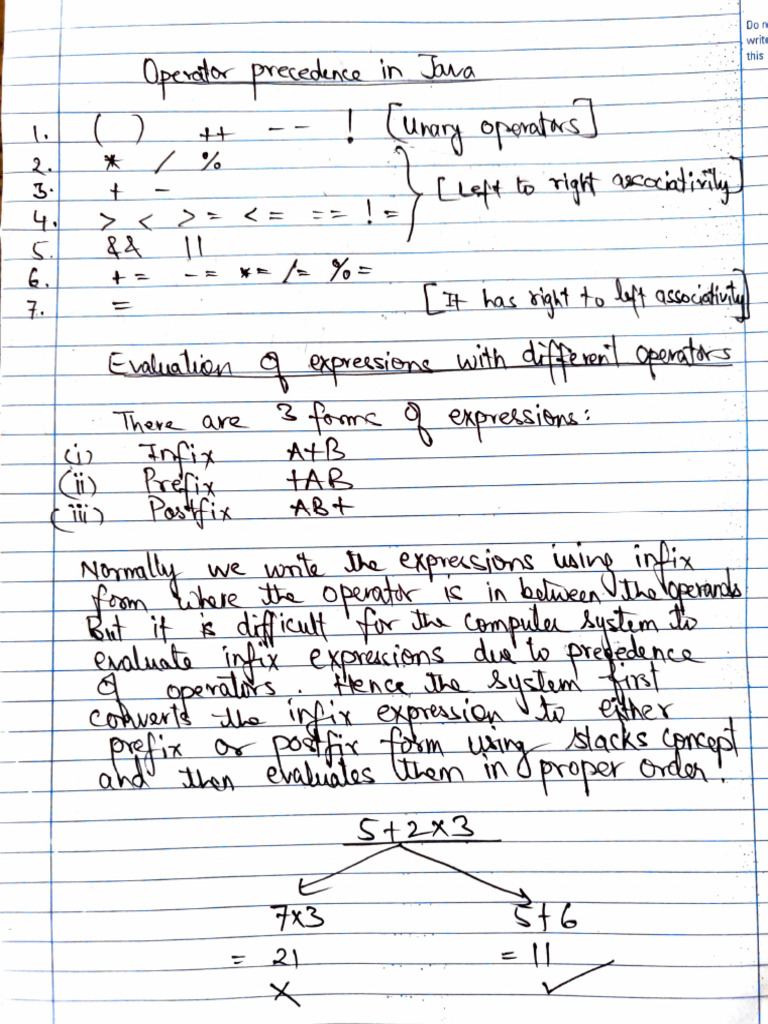 Do n
write
this
Operator precedence in Java
1. ( ) ++ -- ! [Unary operators]
2. * / %
3. + - [Left to right associativity]
4. > < >= <= == !=
5. && ||
6. += -= *= /= %=
7. = [It has right to left associativity]
Evaluation of expressions with different operators
There are 3 forms of expressions:
(i) Infix A+B
(ii) Prefix +AB
(iii) Postfix AB+
Normally we write the expressions using infix
form where the operator is in between the operands
But it is difficult for the computer system to
evaluate infix expressions due to precedence
of operators. Hence the system first
converts the infix expression to either
prefix or postfix form using stacks concept
and then evaluates them in proper order.
5+2×3
7×3 5+6
= 21 = 11
× ✓